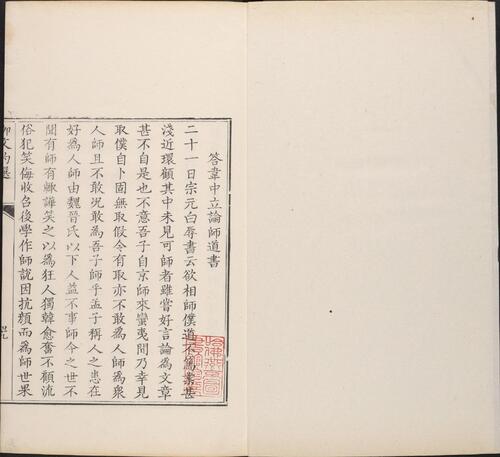 答韋中立論師道書
二十一日宗元白辱書云欲相師僕道不篤業甚
淺近環顧其中未見可師者雖嘗好言論為文章
甚不自是也不意吾子自京師來蠻夷間乃幸見
取僕自卜固無取假令有取亦不敢為人師為衆
人師且不敢況敢為吾子師乎孟子稱人之患在
好為人師由魏晉氏以下人益不事師今之世不
聞有師有輒譁笑之以為狂人獨韓愈奮不顧流
俗犯笑侮收召後學作師說因抗顏而為師世果